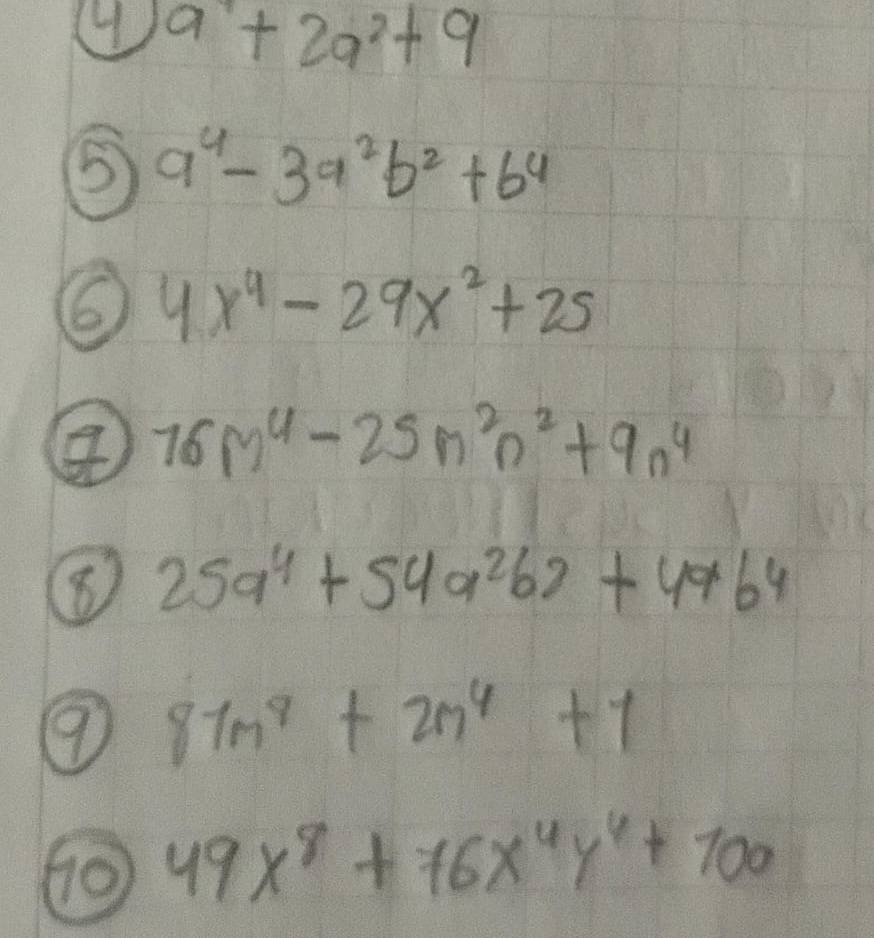 ④ a⁴ + 2a² + 9
⑤ a⁴ - 3a²b² + b⁴
⑥ 4x⁴ - 29x² + 25
⑦ 16m⁴ - 25m²n² + 9n⁴
⑧ 25a⁴ + 54a²b² + 49b⁴
⑨ 81m⁸ + 2m⁴ + 1
⑩ 49x⁸ + 76x⁴y⁴ + 100